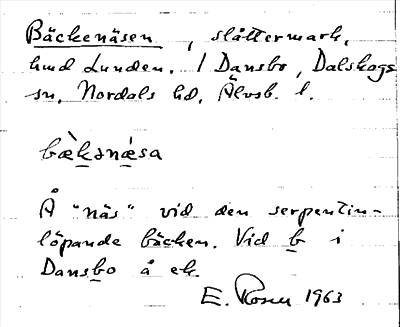 Bäckenäsen, slåttermark,
hmd Lunden. / Dansbo, Dalskogs
sn, Nordals hd, Älvsb. l.
bæ̀ksnæ̀sa
Å "näs" vid den serpentin-
löpande bäcken. Vid b i
Dansbo å ek.
E. Rosen 1963